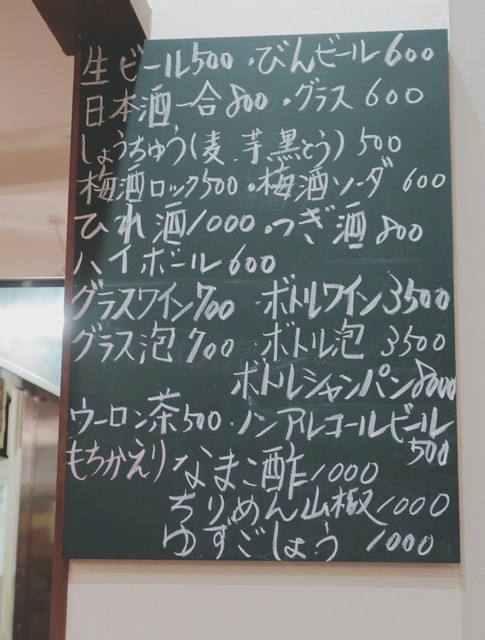 生ビール500・びんビール600
日本酒一合800・グラス600
しょうちゅう(麦.芋.黒とう)500
梅酒ロック500・梅酒ソーダ 600
ひれ酒1000・つぎ酒800
ハイボール600
グラスワイン700 ボトルワイン3500
グラス泡700 ボトル泡 3500
ボトルシャンパン8000
ウーロン茶500・ノンアルコールビール
500
もちかえり なまこ酢1000
ちりめん山椒1000
ゆずごしょう 1000